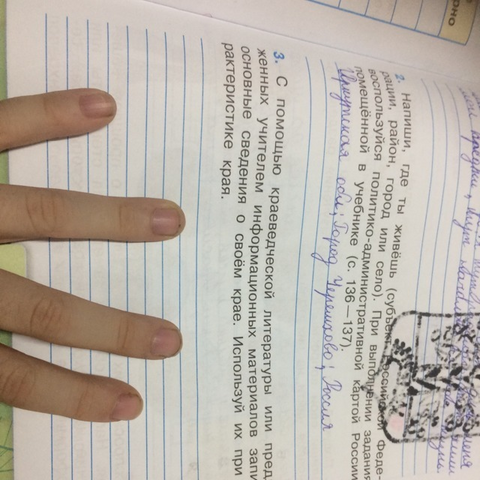 2. Напиши, где ты живёшь (субъект Российской Феде-
рации, район, город или село). При выполнении задания
воспользуйся политико-административной картой России
помещённой в учебнике (с. 136—137).
Иркутская обл; Город Черемхово; Россия
3. С помощью краеведческой литературы или пред
женных учителем информационных материалов запи
основные сведения о своём крае. Используй их при
рактеристике края.